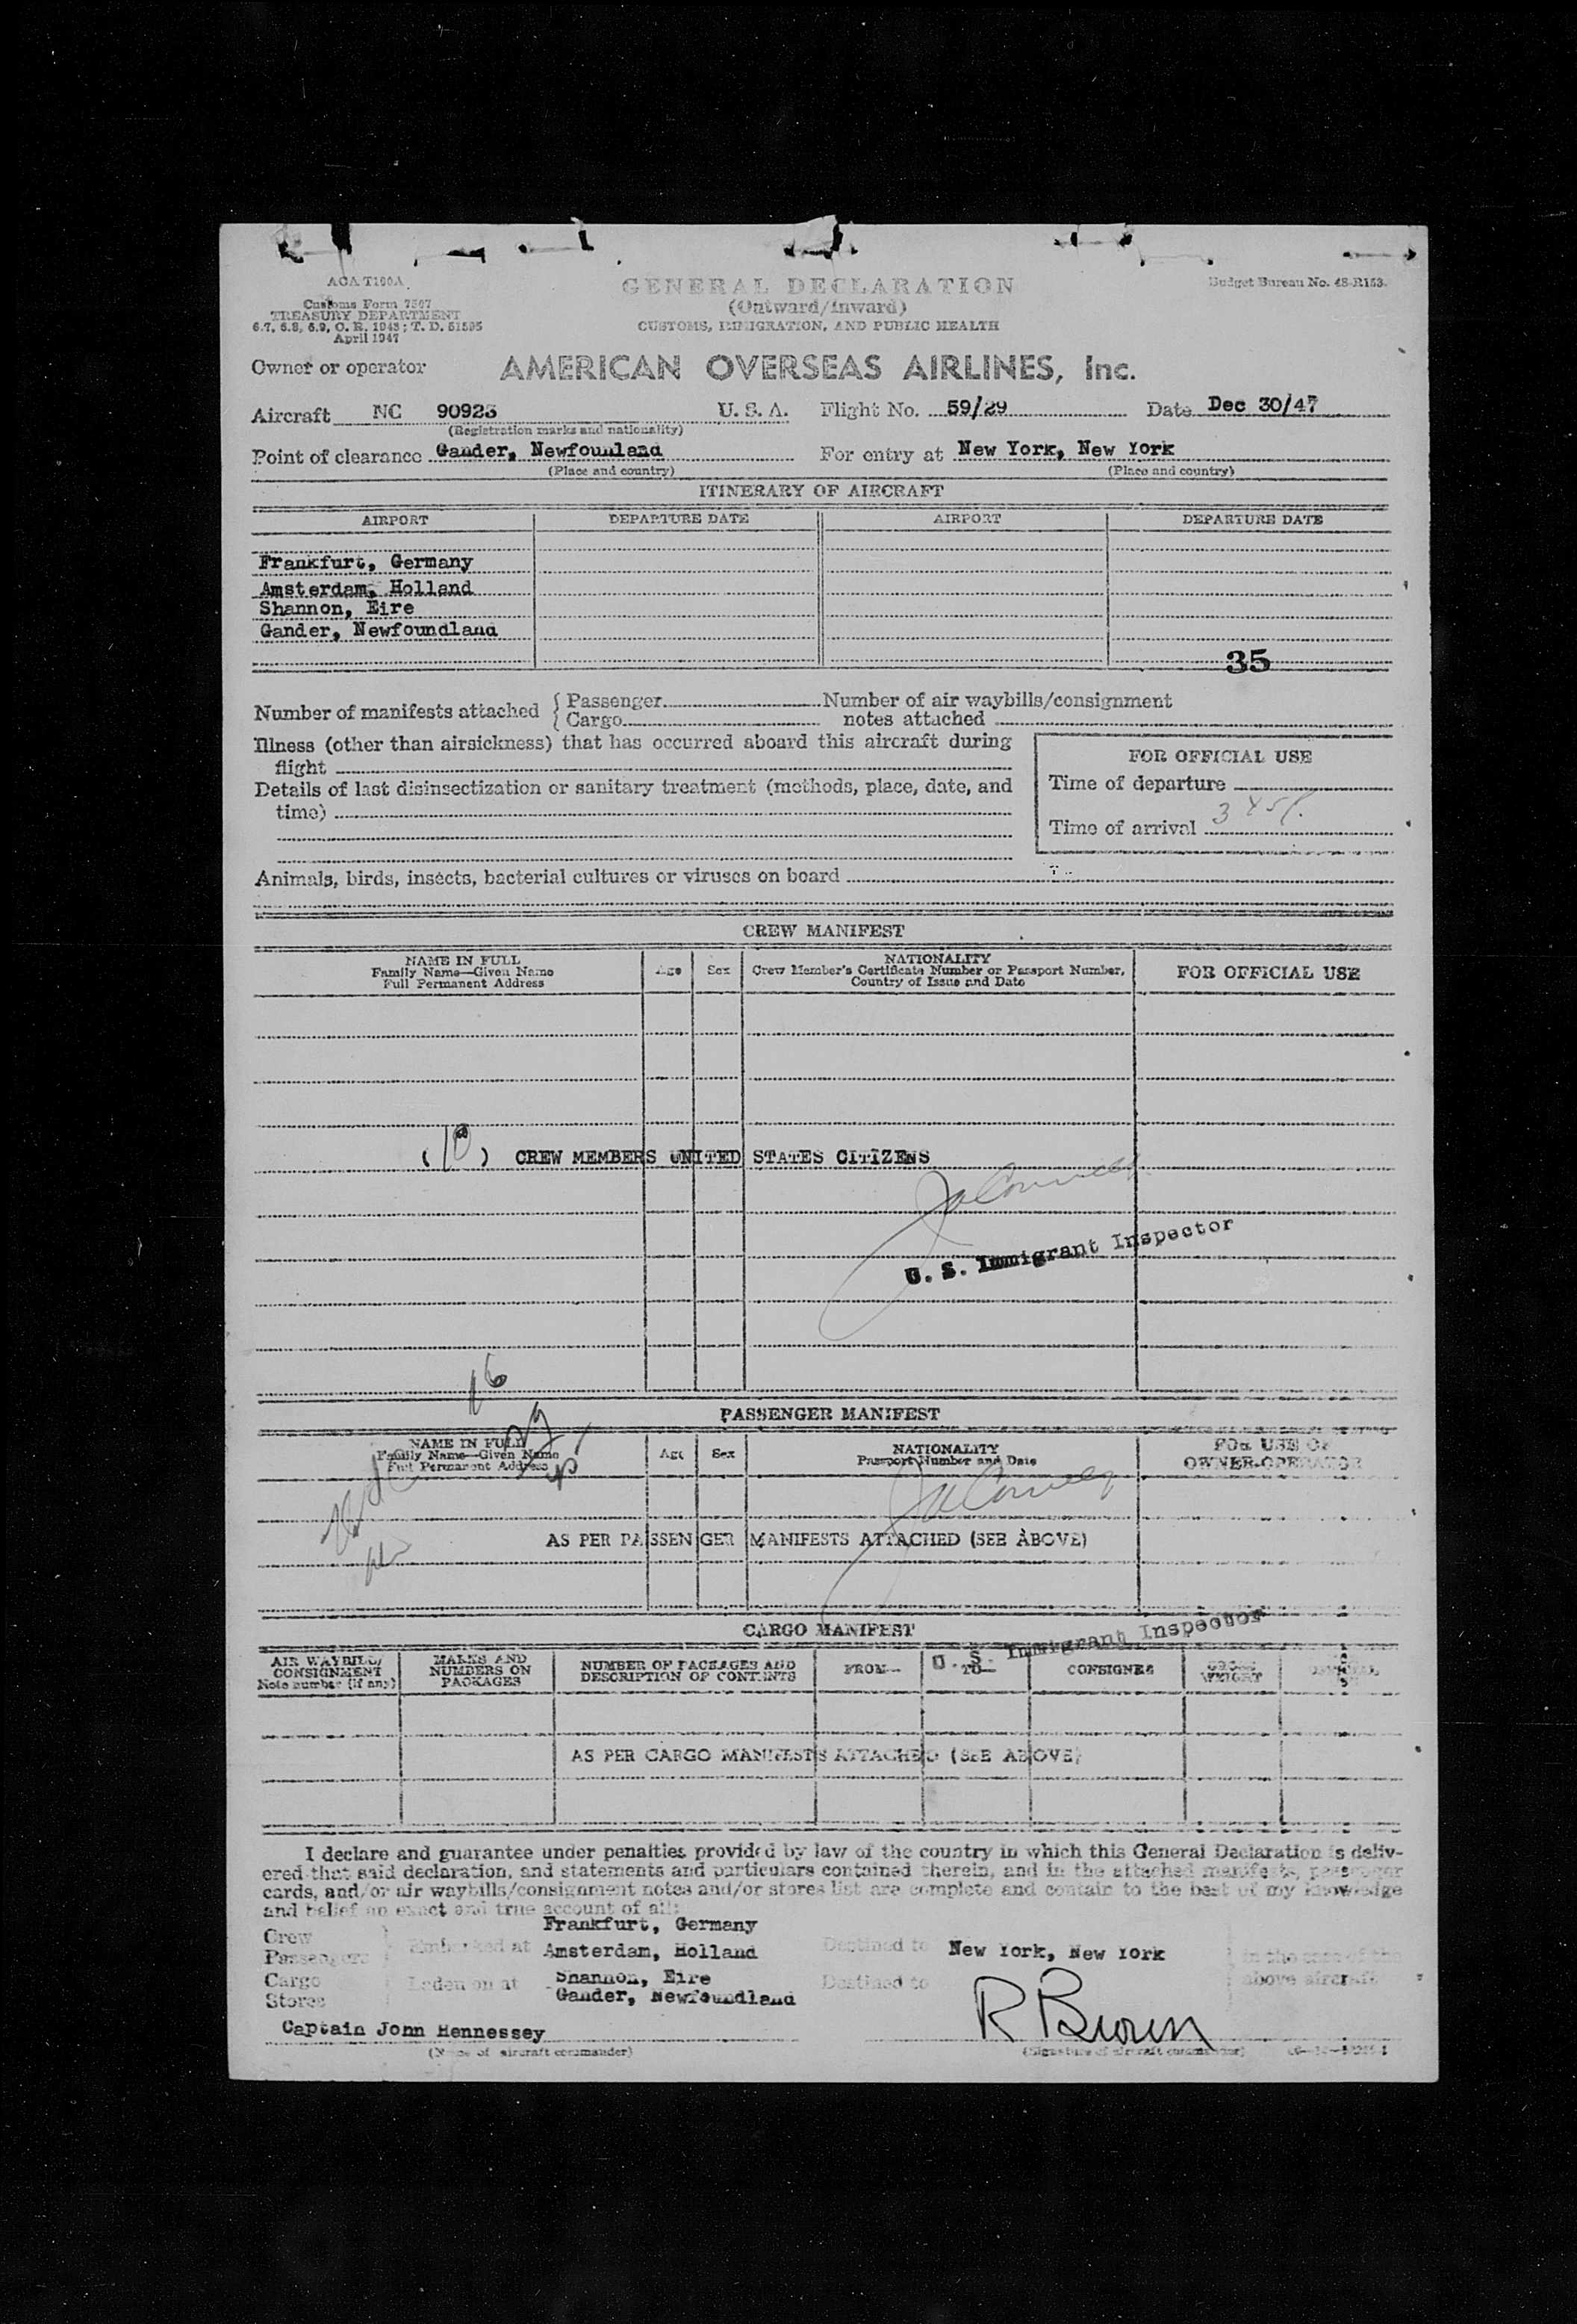 AOA T100A
Customs Form 7507
TREASURY DEPARTMENT
6.7, 6.8, 6.9, C. R. 1943; T. D. 51595
April 1947
GENERAL DECLARATION
(Outward/Inward)
CUSTOMS, IMMIGRATION, AND PUBLIC HEALTH
Budget Bureau No. 48-R153.
Owner or operator AMERICAN OVERSEAS AIRLINES, Inc.
Aircraft NC 90923 U. S. A. Flight No. 59/29 Date Dec 30/47
(Registration marks and nationality)
Point of clearance Gander, Newfounland For entry at New York, New York
(Place and country) (Place and country)
ITINERARY OF AIRCRAFT
AIRPORT DEPARTURE DATE AIRPORT DEPARTURE DATE
Frankfurt, Germany
Amsterdam, Holland
Shannon, Eire
Gander, Newfoundland
35
Number of manifests attached { Passenger Number of air waybills/consignment
Cargo notes attached
Illness (other than airsickness) that has occurred aboard this aircraft during
flight
Details of last disinsectization or sanitary treatment (methods, place, date, and
time)
FOR OFFICIAL USE
Time of departure
Time of arrival 345P.
Animals, birds, insects, bacterial cultures or viruses on board
CREW MANIFEST
NAME IN FULL
Family Name—Given Name
Full Permanent Address
Age Sex
NATIONALITY
Crew Member's Certificate Number or Passport Number,
Country of Issue and Date
FOR OFFICIAL USE
(10) CREW MEMBERS UNITED STATES CITIZENS
U. S. Immigrant Inspector
16
PASSENGER MANIFEST
NAME IN FULL
Family Name—Given Name
Full Permanent Address
Age Sex
NATIONALITY
Passport Number and Date
FOR USE OF
OWNER-OPERATOR
AS PER PASSENGER MANIFESTS ATTACHED (SEE ABOVE)
CARGO MANIFEST
U. S. Immigrant Inspector
AIR WAYBILL/
CONSIGNMENT
Note number (if any)
MARKS AND
NUMBERS ON
PACKAGES
NUMBER OF PACKAGES AND
DESCRIPTION OF CONTENTS
FROM— TO— CONSIGNEE
GROSS
WEIGHT
AS PER CARGO MANIFESTS ATTACHED (SEE ABOVE)
I declare and guarantee under penalties provided by law of the country in which this General Declaration is deliv-
ered that said declaration, and statements and particulars contained therein, and in the attached manifests, passenger
cards, and/or air waybills/consignment notes and/or stores list are complete and contain to the best of my knowledge
and belief an exact and true account of all:
Frankfurt, Germany
Crew
Passengers Embarked at Amsterdam, Holland Destined to New York, New York in the case of the
Cargo Laden on at Shannon, Eire Destined to above aircraft
Stores Gander, Newfoundland
Captain John Hennessey R Brown
(Name of aircraft commander) (Signature of aircraft commander)